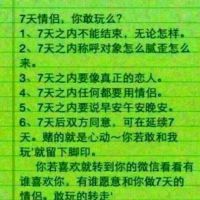 7天情侣，你敢玩么？
1、7天之内不能结束，无论怎样。
2、7天之内称呼对象怎么腻歪怎么
来。
3、7天之内要像真正的恋人。
4、7天之内任何都要用情侣。
5、7天之内要说早安午安晚安。
6、7天后双方同意，可在延续7
天。赌的就是心动～你若敢和我
玩'就留下脚印。
你若喜欢就转到你的微信看看有
谁喜欢你，有谁愿意和你做7天的
情侣。敢玩的转走'